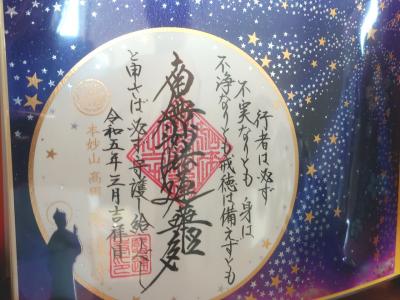 行者は必ず
不実なりとも 身は
不浄なりとも戒徳は備えずとも
南無妙法蓮華経
と申さば必ず守護し給うべし
令和五年三月吉祥日
本妙山